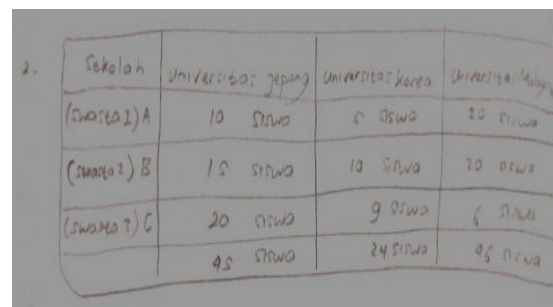 2. Sekolah Universitas Jepang Universitas korea Universitas
(Swasta 1) A 10 siswa 5 siswa 20 siswa
(swasta 2) B 15 siswa 10 siswa 20 siswa
(swasta 3) C 20 siswa 9 siswa 6 siswa
45 siswa 24 siswa 46 siswa